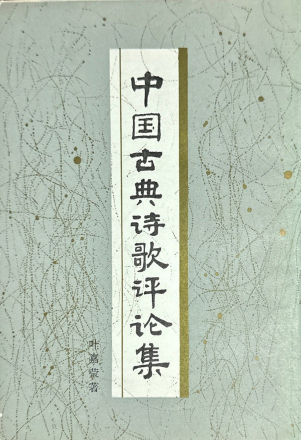 中国古典诗歌评论集
叶嘉莹著